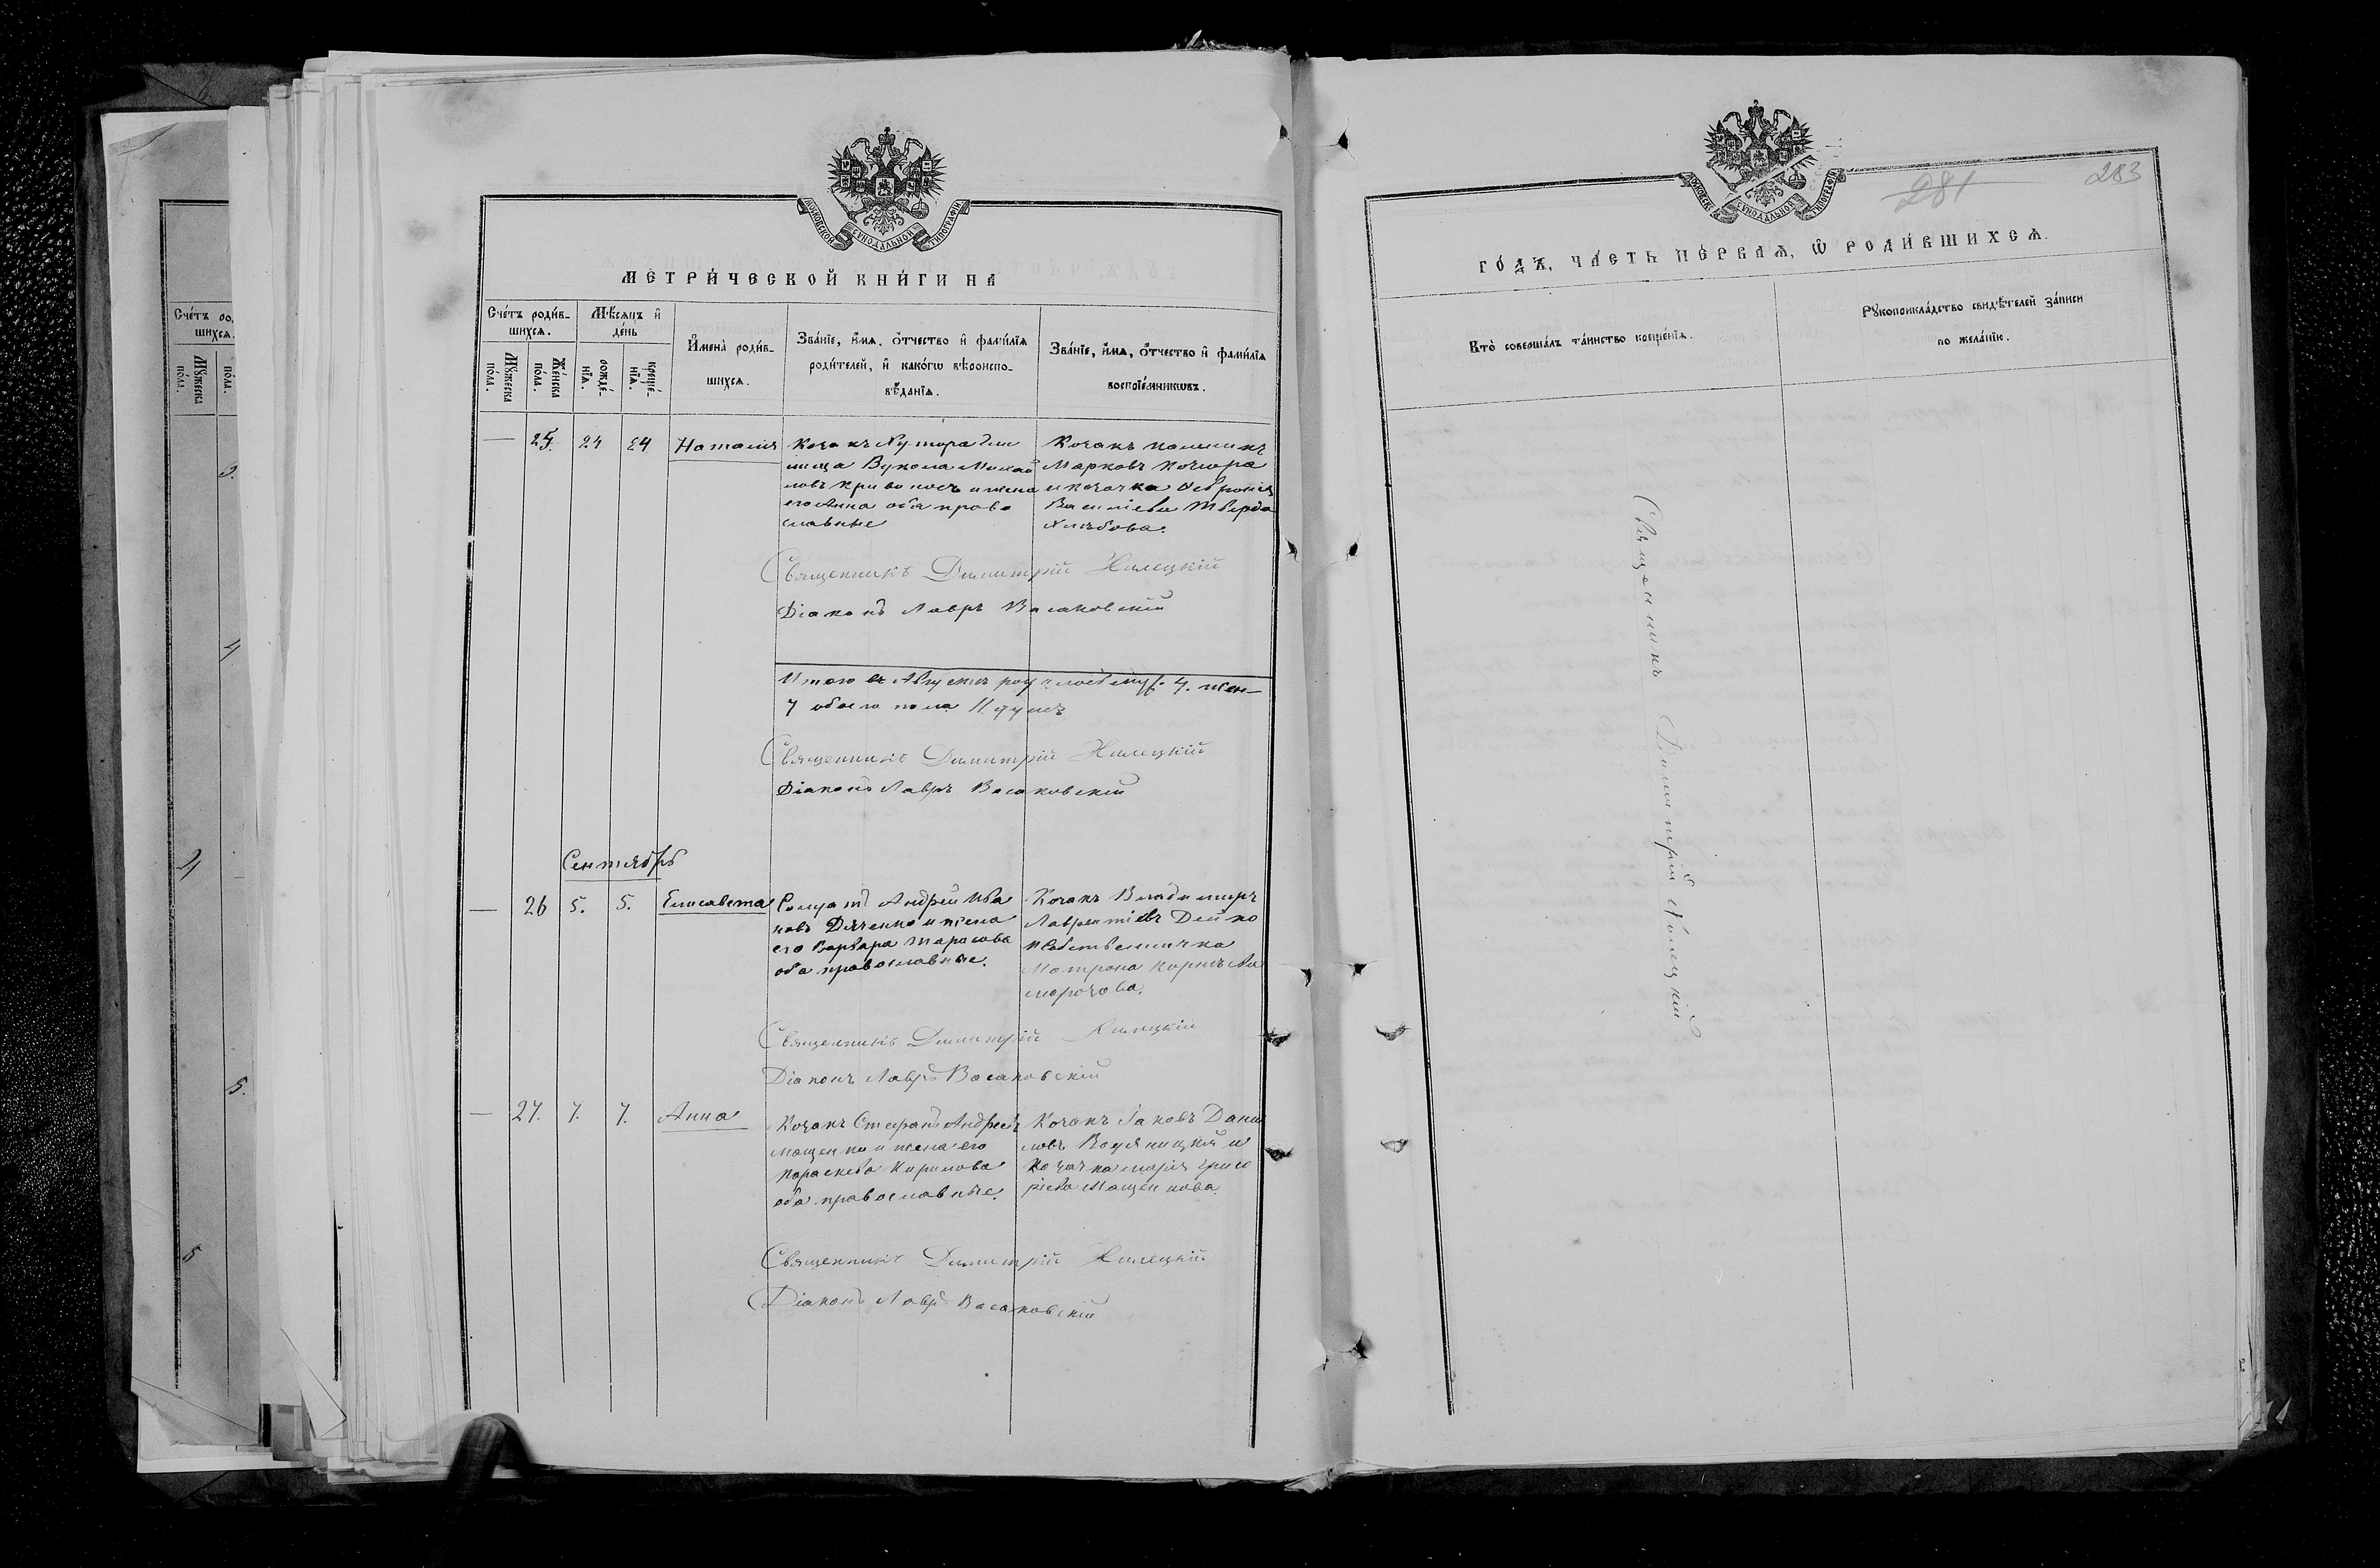 МОСКОВСКОЙ СѴНОДАЛЬНОЙ ТИПОГРАФІИ
МЕТРИ́ЧЕСКОЙ КНИ́ГИ НА
Сче́тъ роди́в-
шихсѧ.
Мѣ́сѧцъ и҆
де́нь
Мꙋ́жеска
по́ла.
Же́нска
по́ла.
рожде́-
нїѧ.
креще́-
нїѧ.
И҆мена̀ роди́в-
шихсѧ.
Зва́нїе, и҆́мѧ, ѻ҆́тчество и҆ фами́лїѧ
роди́телей, и҆ како́гѡ вѣроиспо-
вѣ́данїѧ.
Зва́нїе, и҆́мѧ, ѻ҆́тчество и҆ фами́лїѧ
воспрїе́мникѡвъ.
— 25. 24 24 Наталія
Козакъ Хутора
Вукола Михай
ловъ Кривоносъ и жена
его Анна оба право
славные
Козакъ
Марковъ
и козачка
Василіева Твердо
хлѣбова.
Священникъ Димитрій Хилецкій
Діаконъ Лавръ Васаковскій
Итого въ Августѣ род. 4. жен—
7 обоего пола 11 душъ
Священникъ Димитрій Хилецкій
Діаконъ Лавръ Васаковскій
Сентябрь
— 26 5. 5. Елисавета
Солдатъ Андрей Ива
новъ Дяченко и жена
его Варвара Тарасова
оба православные.
Козакъ Владимиръ
Лаврентіевъ Дейко
Матрона
Священникъ Димитрій Хилецкій
Діаконъ Лавръ Васаковскій
— 27. 7. 7. Анна
Козакъ Стефанъ Андреевъ
Мащенко и жена его
Параскева Кирилова
оба православные.
Козакъ Іаковъ Дани
ловъ Водяницкій и
Козачка Марія Григо
ріева Мащенкова.
Священникъ Димитрій Хилецкій
Діаконъ Лавръ Васаковскій
МОСКОВСКОЙ СѴНОДАЛЬНОЙ ТИПОГРАФІИ
281
283
ГО́ДЪ, ЧА́СТЬ ПЕ́РВАѦ, Ѽ РОДИ́ВШИХСѦ.
Кто̀ соверша́лъ та́инство креще́нїѧ.
Рꙋкоприкла́дство свидѣ́телей за́писи
по жела́нїю.
Священникъ Димитрій Хилецкій
Сче́тъ ро
шихсѧ.
Мꙋ́жеска
по́ла.
по́ла.
3.
4
4
5.
5